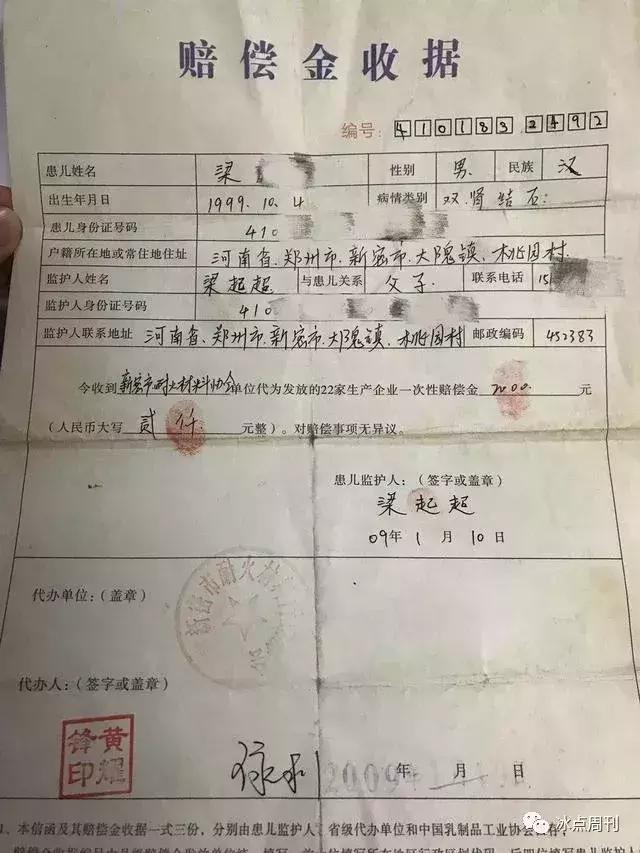 赔偿金收据
编号：410183 2492
患儿姓名 梁 性别 男 民族 汉
出生年月日 1999.10.4 病情类别 双肾结石
患儿身份证号码 410
户籍所在地或常住地住址 河南省.郑州市.新密市.大隗镇.桃园村
监护人姓名 梁起超 与患儿关系 父子 联系电话 15
监护人身份证号码 410
监护人联系地址 河南省、郑州市.新密市.大隗镇.桃园村 邮政编码 452383
今收到 新密市耐火材料协会 单位代为发放的22家生产企业一次性赔偿金 2000 元
（人民币大写 贰仟 元整）。对赔偿事项无异议。
患儿监护人：（签字或盖章）
梁起超
09年1月10日
代办单位：（盖章）
新密市耐火材
代办人：（签字或盖章）
黄耀锋印
2009年 月 日
1、本信函及其赔偿金收据一式三份，分别由患儿监护人、省级代办单位和中国乳制品工业协会留存，
冰点周刊